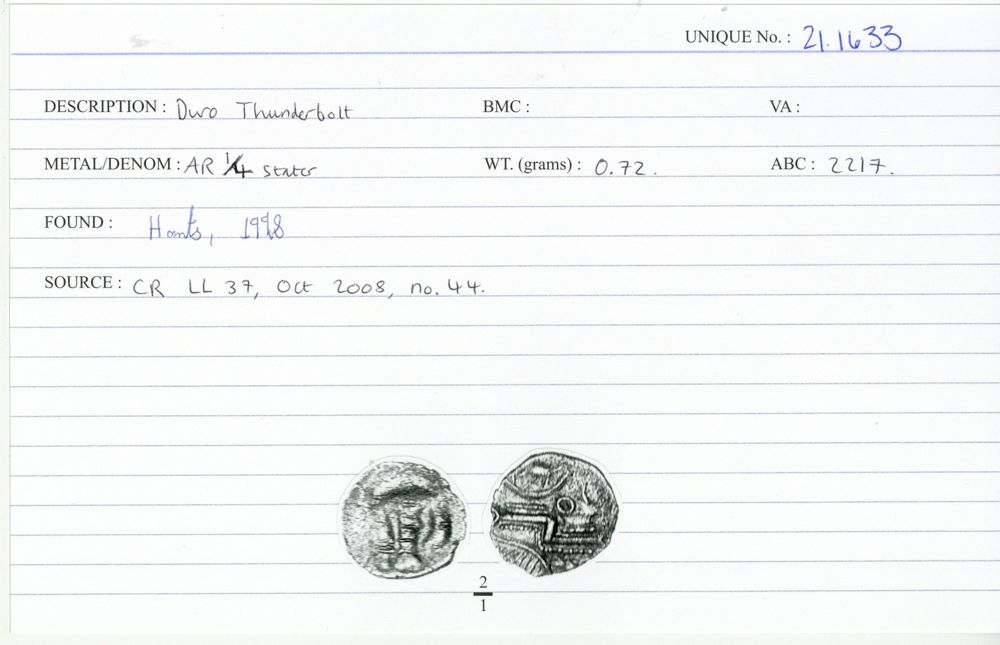 UNIQUE No. : 21.1633
DESCRIPTION : Duro Thunderbolt BMC : VA :
METAL/DENOM : AR 1/4 stater WT. (grams) : 0.72. ABC : 2217.
FOUND : Hants, 1998
SOURCE : CR LL 37, Oct 2008, no. 44.
2
1